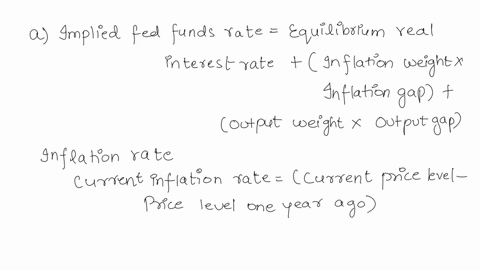 a) Implied fed funds rate = Equilibrium real
interest rate + (Inflation weight x
Inflation gap) +
(Output weight x Output gap)
Inflation rate
Current inflation rate = (Current price level-
Price level one year ago)